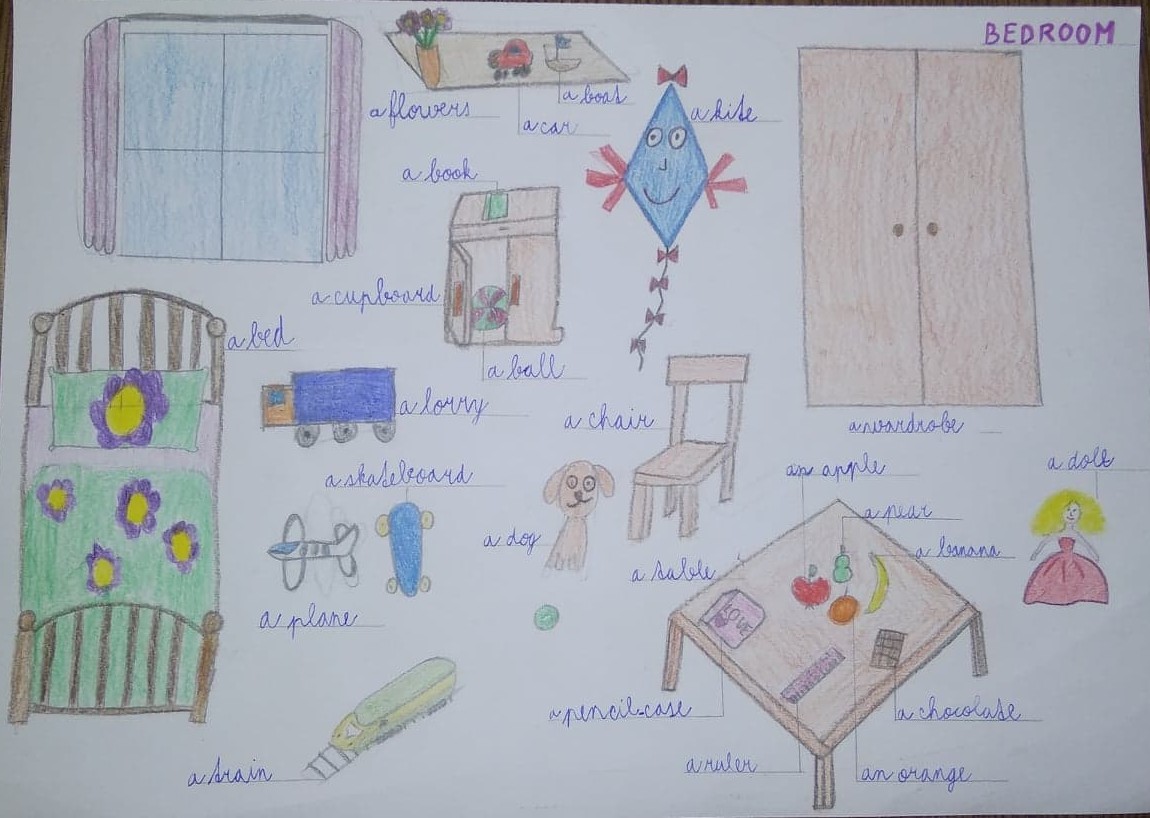 BEDROOM
a flowers
a boat
a car
a kite
a book
a cupboard
a bed
a ball
a lorry
a chair
a wardrobe
a skateboard
an apple
a doll
a pear
a dog
a banana
a table
a plane
LOVE
a pencil-case
a chocolate
a train
a ruler
an orange